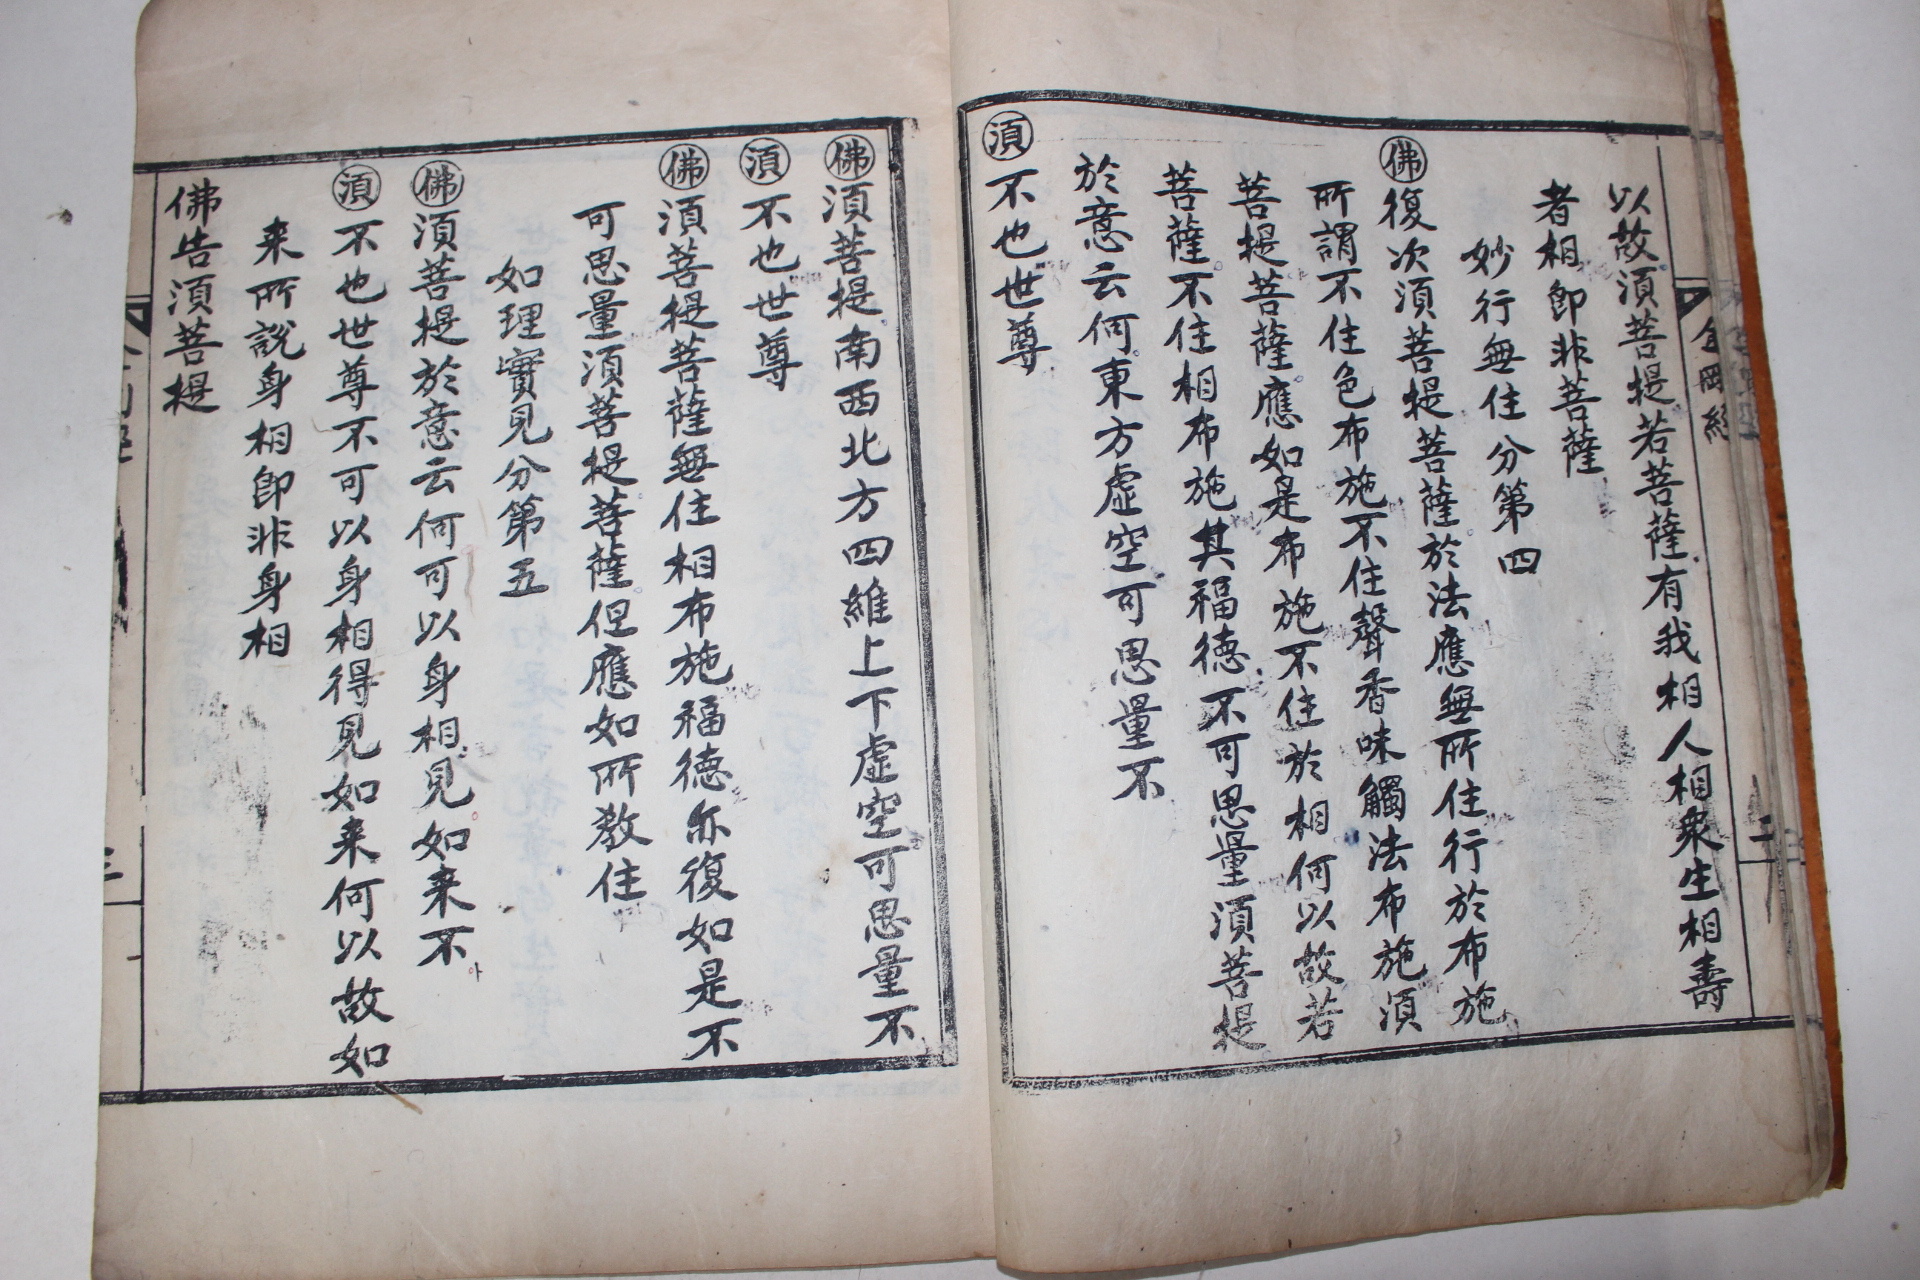 金岡經
二
以故須菩提若菩薩有我相人相衆生相壽
者相卽非菩薩
妙行無住分第四
佛復次須菩提菩薩於法應無所住行於布施
所謂不住色布施不住聲香味觸法布施須
菩提菩薩應如是布施不住於相何以故若
菩薩不住相布施其福德不可思量須菩提
於意云何東方虛空可思量不
須不也世尊
佛須菩提南西北方四維上下虛空可思量不
須不也世尊
佛須菩提菩薩無住相布施福德亦復如是不
可思量須菩提菩薩但應如所教住
如理實見分第五
佛須菩提於意云何可以身相見如来不
須不也世尊不可以身相得見如来何以故如
来所說身相卽非身相
佛告須菩提
三